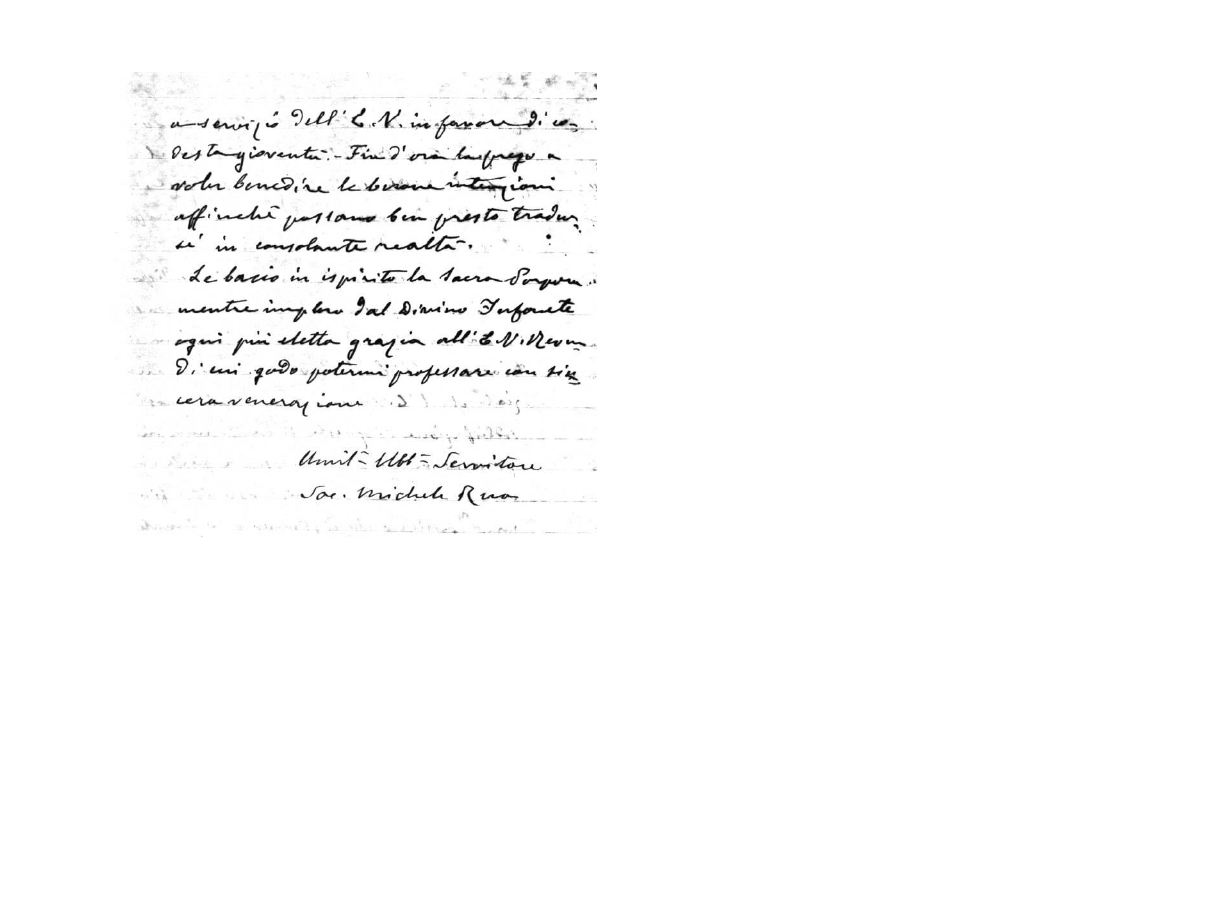 a servizio dell' E. V. in favore di co-
desta gioventù. - Fin d'ora la prego a
voler benedire le buone intenzioni
affinchè possano ben presto tradur-
si in consolante realtà.
Le bacio in ispirito la Sacra Porpora
mentre imploro dal Divino Infante
ogni più eletta grazia all' E. V. Revma
di cui godo potermi professare con sin-
cera venerazione
Umil= Obb= Servitore
Sac. Michele Rua